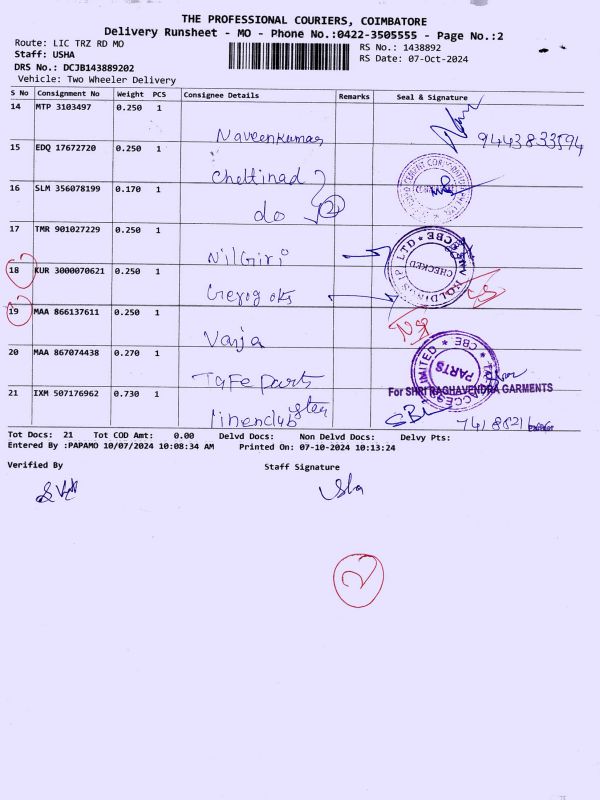 THE PROFESSIONAL COURIERS, COIMBATORE
Delivery Runsheet - MO - Phone No.:0422-3505555 - Page No.:2
Route: LIC TRZ RD MO
RS No.: 1438892
Staff: USHA
RS Date: 07-Oct-2024
DRS No.: DCJB143889202
Vehicle: Two Wheeler Delivery
S No Consignment No Weight PCS Consignee Details Remarks Seal & Signature
14 MTP 3103497 0.250 1
Naveenkumar 9443833594
15 EDQ 17672720 0.250 1
Chettinad
16 SLM 356078199 0.170 1
do 2
17 TMR 901027229 0.250 1
Nilgiri
18 KUR 3000070621 0.250 1
CHECKED
19 MAA 866137611 0.250 1
Vanja
20 MAA 867074438 0.270 1
PARTS
Tafe parts
For SHRI RAGHAVENDRA GARMENTS
21 IXM 507176962 0.730 1
linenclub
Tot Docs: 21 Tot COD Amt: 0.00 Delvd Docs: Non Delvd Docs: Delvy Pts:
Entered By :PAPAMO 10/07/2024 10:08:34 AM Printed On: 07-10-2024 10:13:24
Verified By Staff Signature
Usha
2